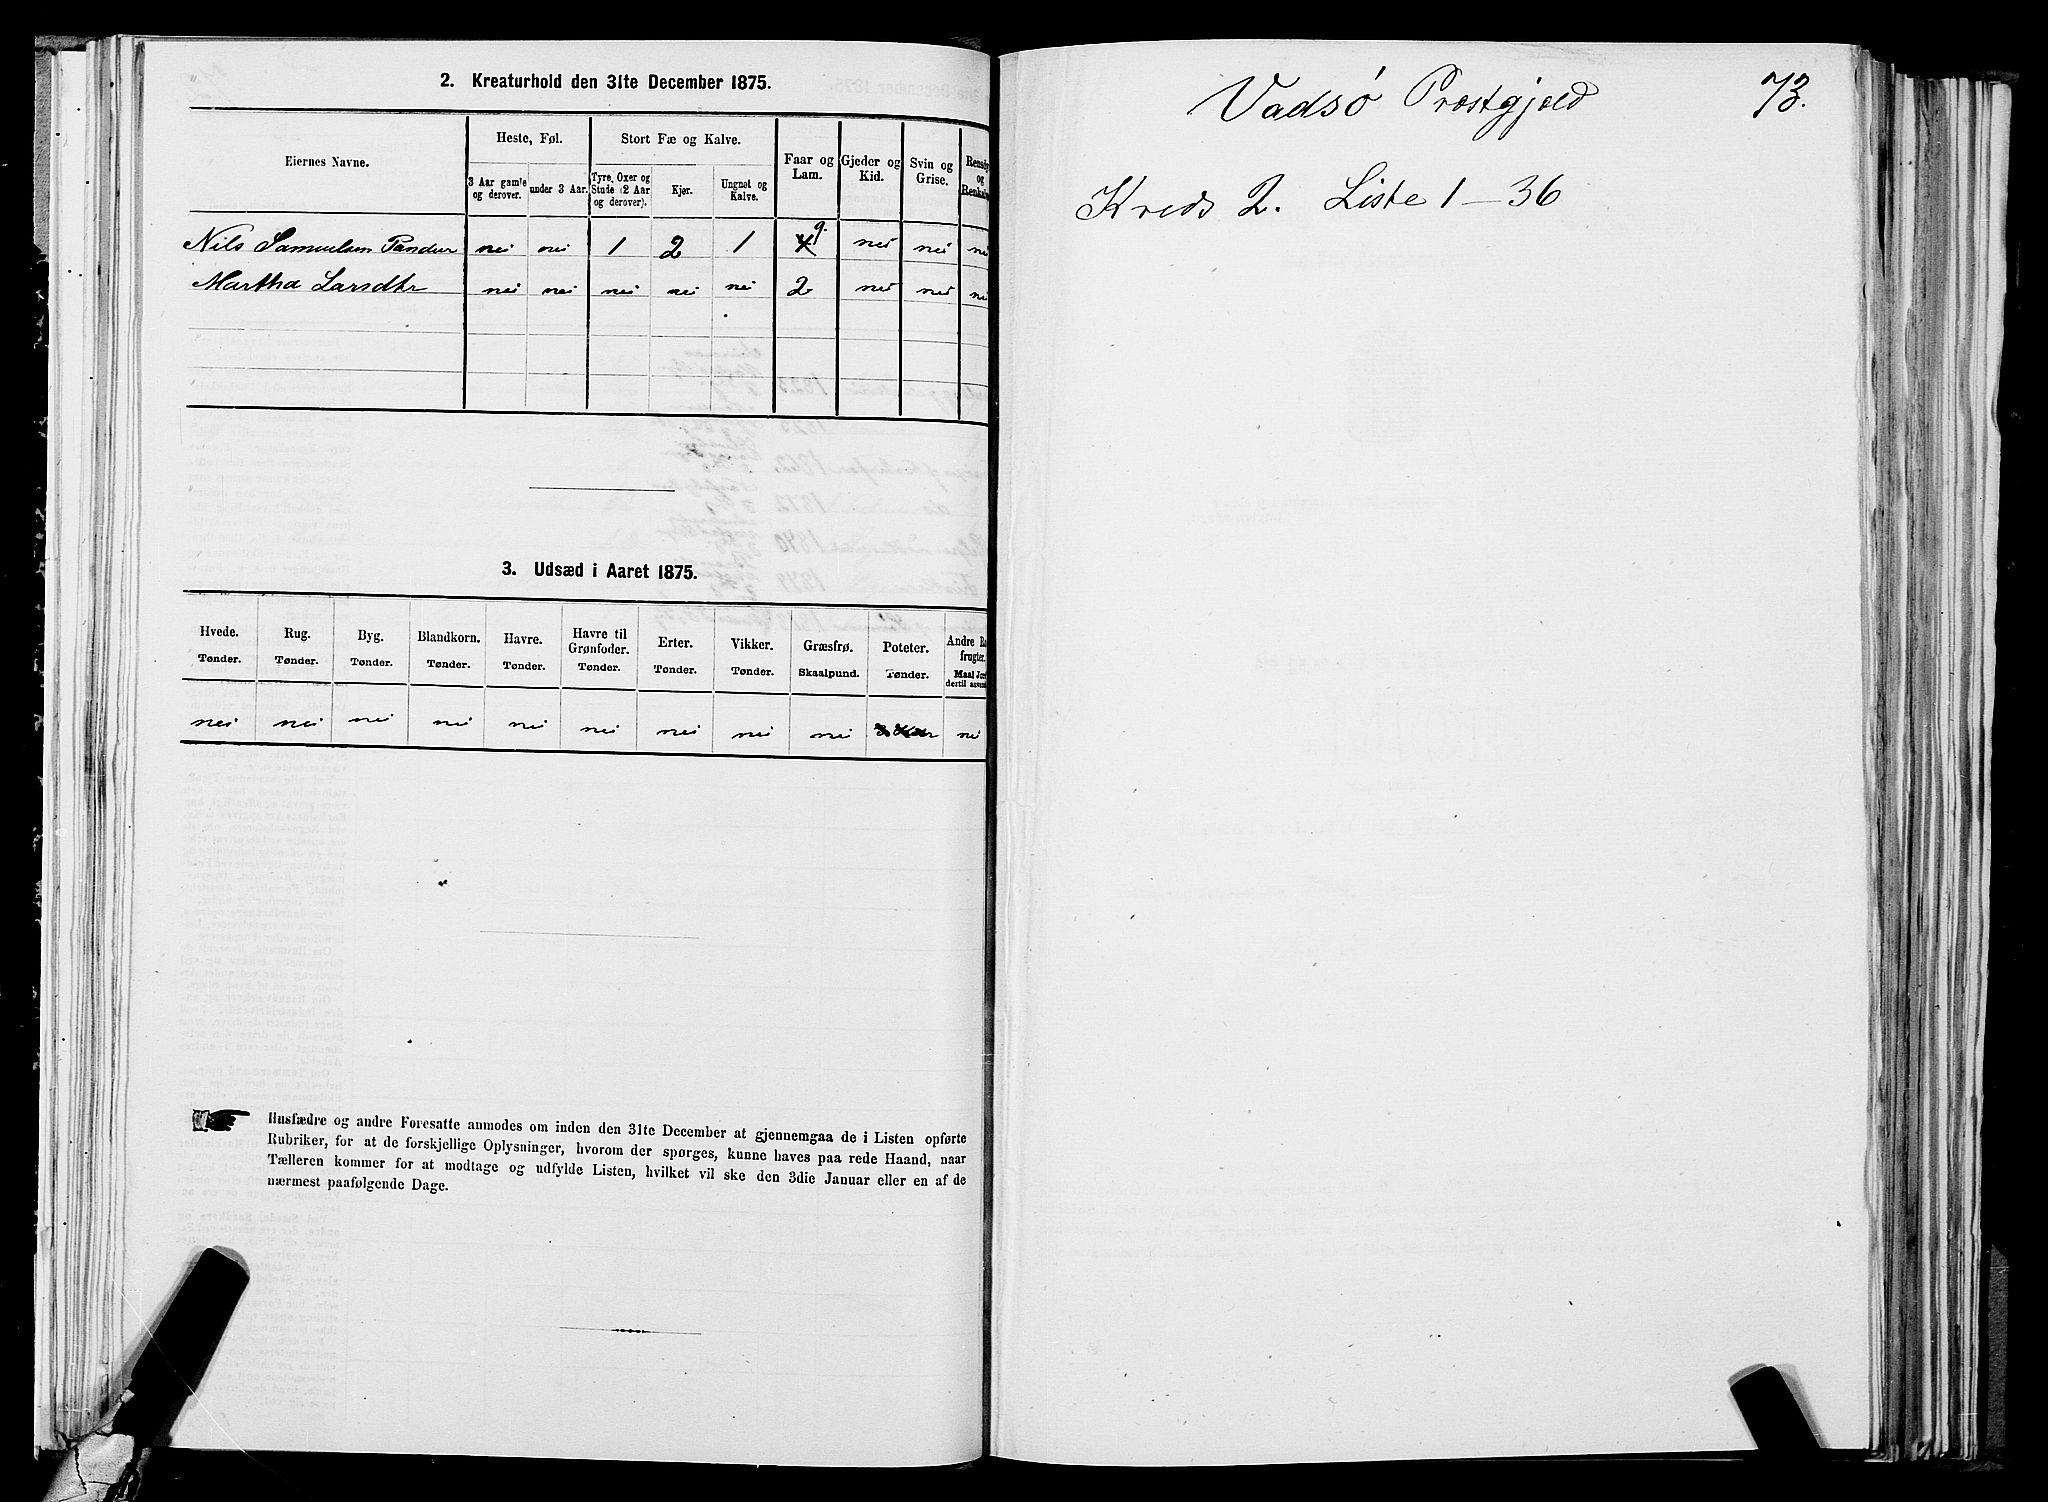 2. Kreaturhold den 31te December 1875.
Eiernes Navne. Heste, Føl. Stort Fæ og Kalve. Faar og Lam. Gjeder og Kid. Svin og Grise. og
3 Aar gamle og derover. under 3 Aar. Tyre, Oxer og Stude (2 Aar og derover). Kjør. Ungnøt og Kalve.
Nils Samuelsen Pandur nei nei 1 2 1 9 nei nei
Martha Larsdtr nei nei nei nei nei 2 nei nei
3. Udsæd i Aaret 1875.
Hvede. Rug. Byg. Blandkorn. Havre. Havre til Grønfoder. Erter. Vikker. Græsfrø. Poteter. Andre
Tønder. Tønder. Tønder. Tønder. Tønder. Tønder. Tønder. Tønder. Skaalpund. Tønder. Maal
nei nei nei nei nei nei nei nei nei
Husfædre og andre Foresatte anmodes om inden den 31te December at gjennemgaa de i Listen opførte
Rubriker, for at de forskjellige Oplysninger, hvorom der spørges, kunne haves paa rede Haand, naar
Tælleren kommer for at modtage og udfylde Listen, hvilket vil ske den 3die Januar eller en af de
nærmest paafølgende Dage.
Vadsø Præstgjeld 73.
Kreds 2. Liste 1–36